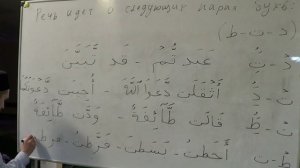 Речь идет о следующих парах букв:
(د - ت - ط)
د - ت عَبَدتُّمْ - قَد تَّبَيَّنَ
ت - د أَثْقَلَت دَّعَوَا اللَّهَ - أُجِيبَت
ت - ط قَالَت طَّآئِفَةٌ - وَدَّت طَّآئِفَةٌ
ط - ت أَحَطتُ - بَسَطتَ - فَرَّطتُ